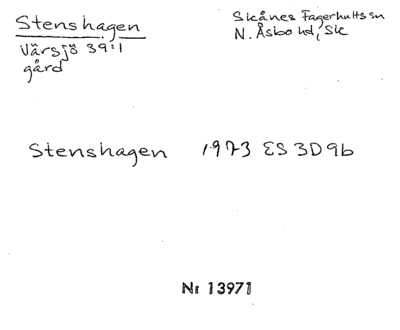 Stenshagen
Värsjö 39:1
gård
Skånes Fagerhults sn
N. Åsbo hd, Sk
Stenshagen 1973 ES 3D9b
Nr 13971